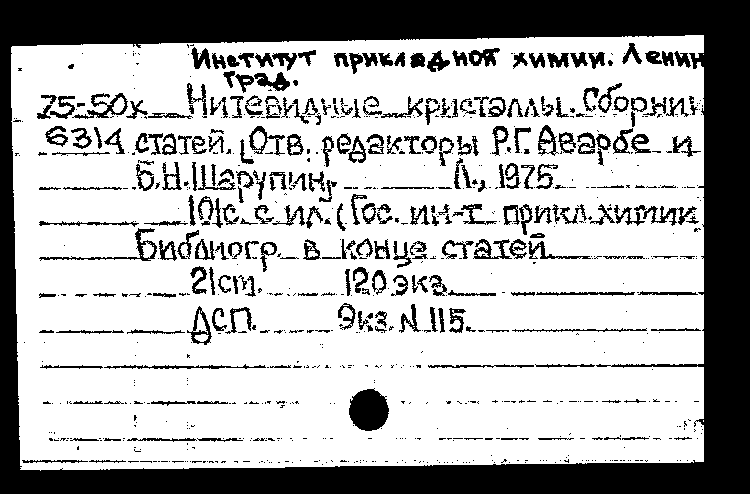 Институт прикладной химии. Ленин
град.
75-50к Нитевидные кристаллы. Сборник
6314 статей. [Отв. редакторы Р.Г. Аварбе и
Б.Н. Шарупин]. Л., 1975.
101с. с ил. (Гос. ин-т прикл. химии
Библиогр. в конце статей.
21 ст. 120 экз.
ДСП. Экз. N 115.